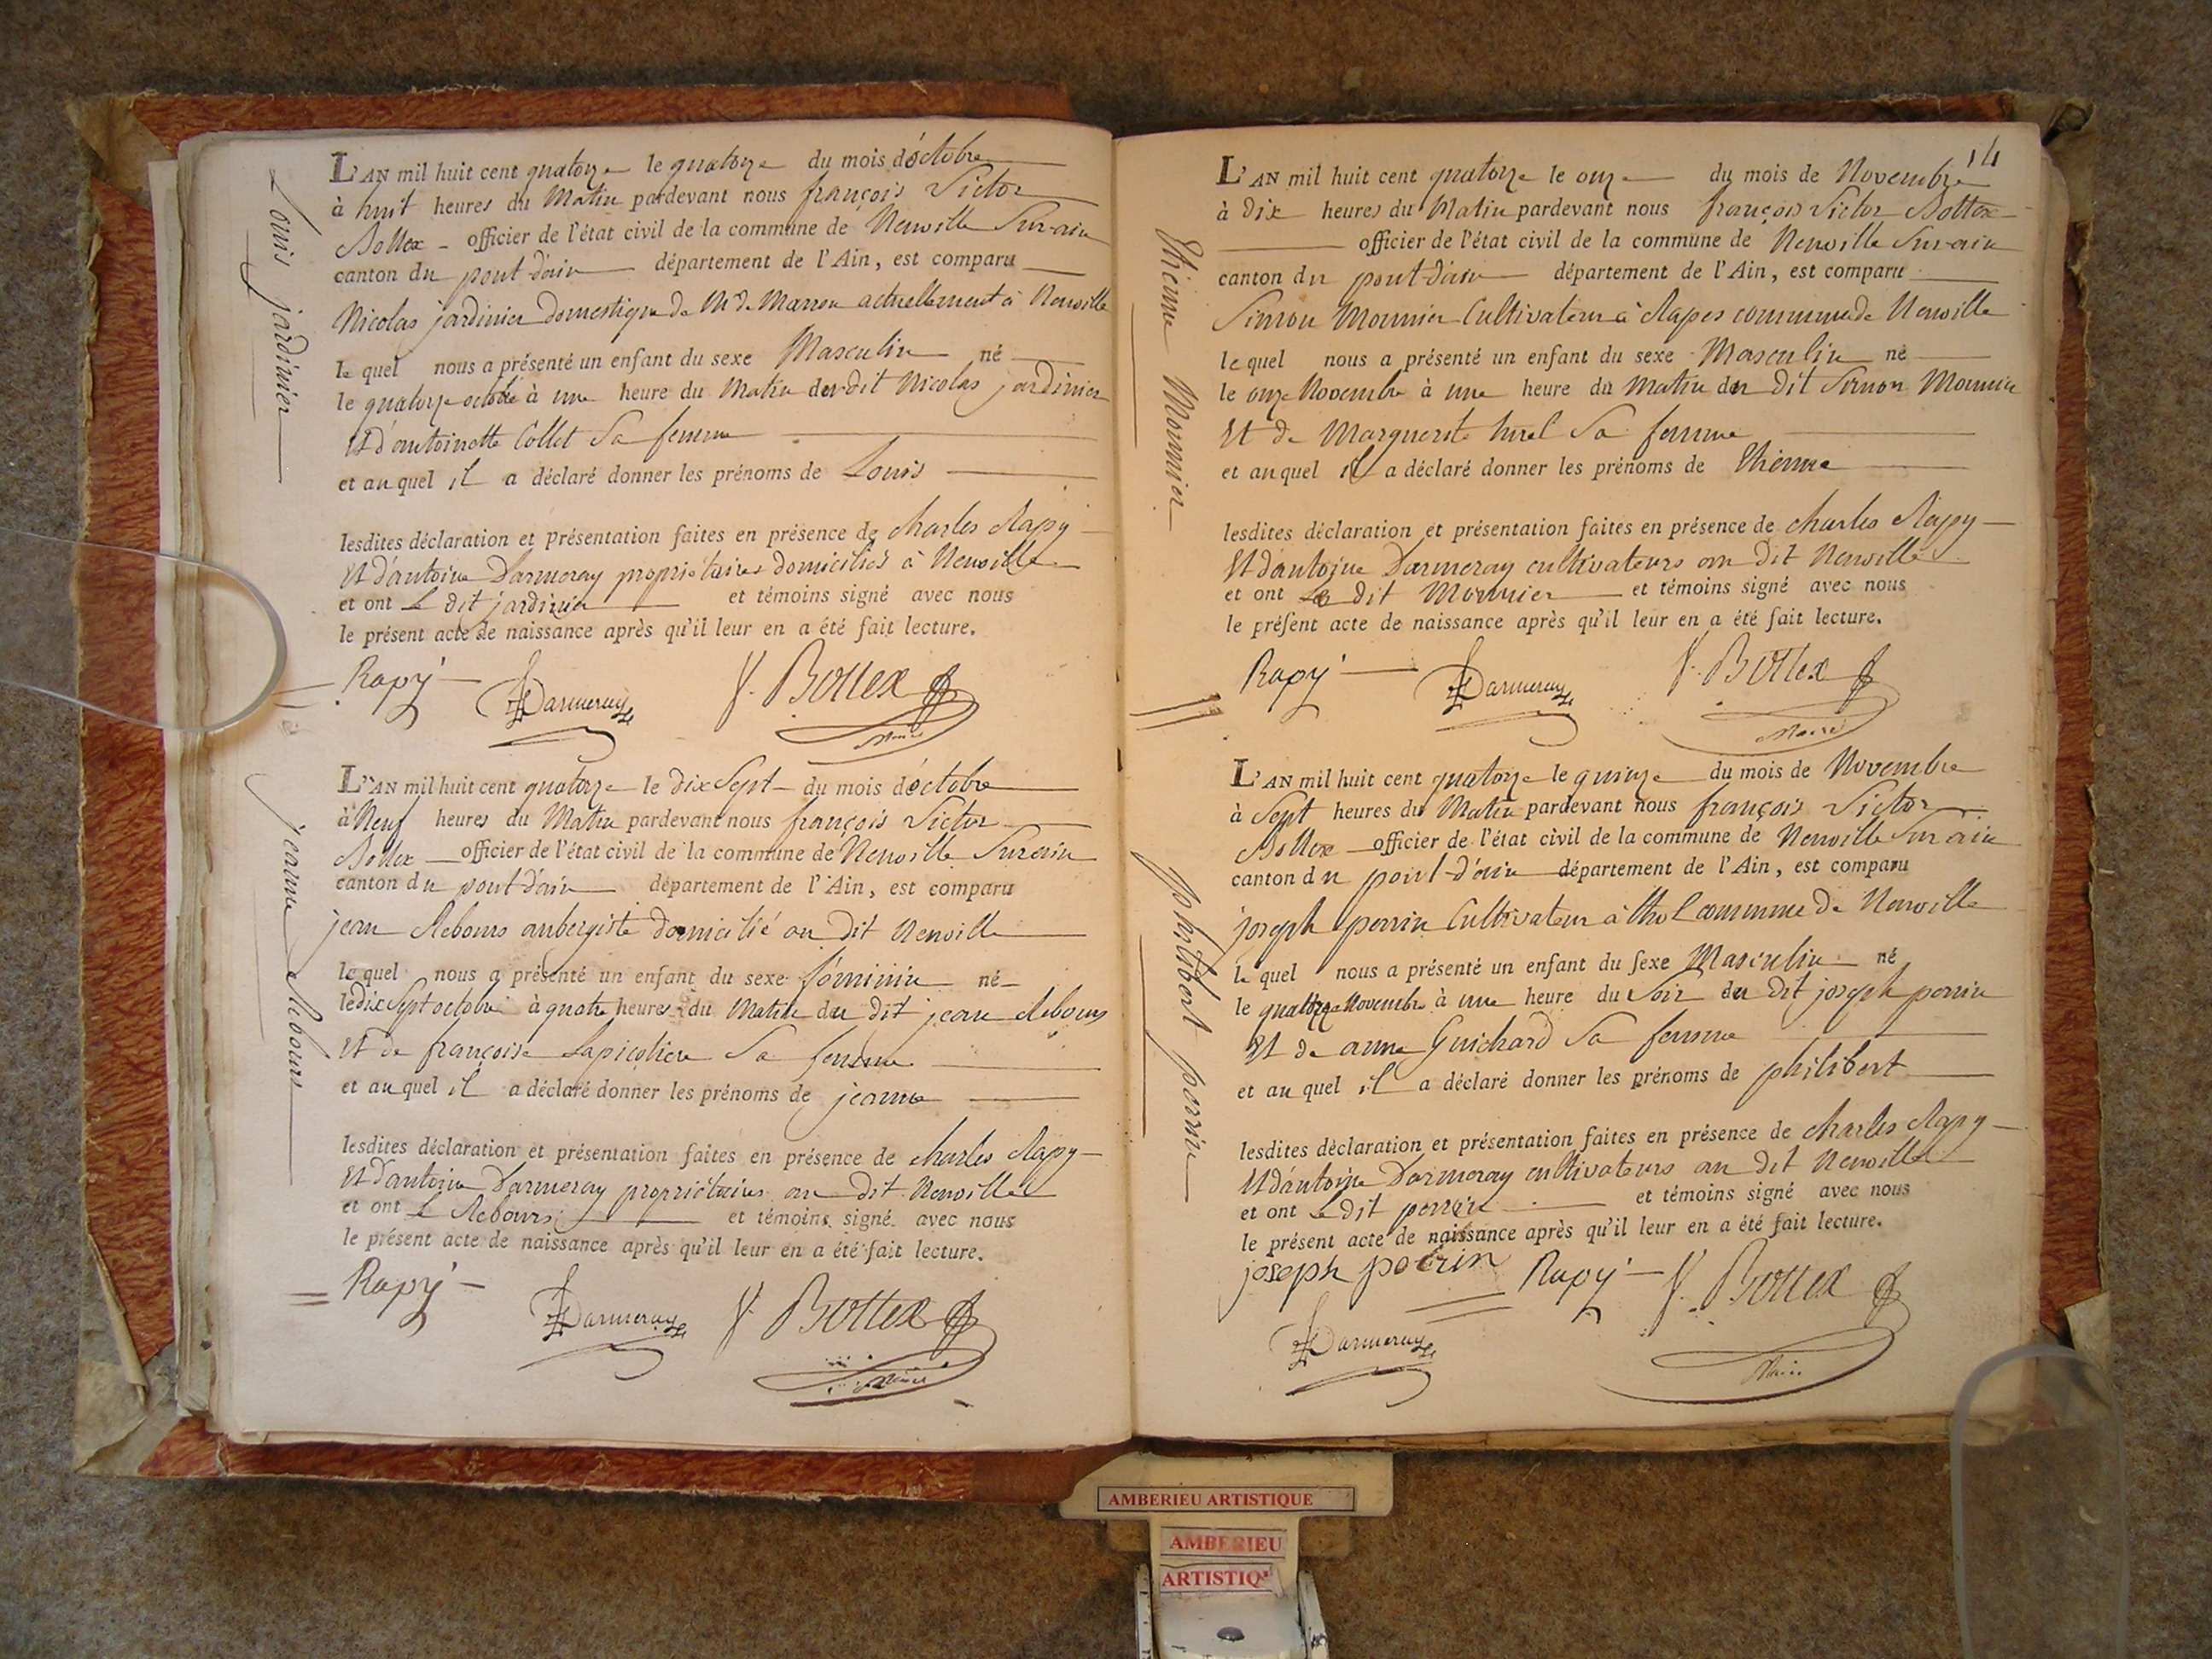 Louis jardinier
L'AN mil huit cent quatorze le quatorze du mois d'octobre
à huit heures du Matin pardevant nous françois Victor
Bottex officier de l'état civil de la commune de Neuville Sur-ain
canton du pont-d'ain département de l'Ain, est comparu
Nicolas jardinier domestique de Mr de Marron actuellement à Neuville
le quel nous a présenté un enfant du sexe Masculin né
le quatorze octobre à une heure du Matin du dit Nicolas jardinier
Et d'antoinette Collet Sa femme
et au quel il a déclaré donner les prénoms de Louis
lesdites déclaration et présentation faites en présence de charles Rapy
Et d'antoine Darmeray propriétaires domiciliés à Neuville
et ont Le dit jardinier et témoins signé avec nous
le présent acte de naissance après qu'il leur en a été fait lecture.
Rapy Darmeray V. Bottex
Maire
jeanne Rebours
L'AN mil huit cent quatorze le dix Sept du mois d'octobre
à Neuf heures du Matin pardevant nous françois Victor
Bottex officier de l'état civil de la commune de Neuville Sur ain
canton du pont d'ain département de l'Ain, est comparu
jean Rebours aubergiste domicilié au dit Neuville
le quel nous a présenté un enfant du sexe féminin né
le dix Sept octobre à quatre heures du Matin du dit jean Rebours
Et de françoise Lapicotiere Sa femme
et au quel il a déclaré donner les prénoms de jeanne
lesdites déclaration et présentation faites en présence de charles Rapy
Et d'antoine Darmeray propriétaires au dit Neuville
et ont Le Rebours et témoins signé avec nous
le présent acte de naissance après qu'il leur en a été fait lecture.
Rapy Darmeray V. Bottex
Maire
14
Etienne Mounier
L'AN mil huit cent quatorze le onze du mois de Novembre
à dix heures du Matin pardevant nous françois Victor Bottex
officier de l'état civil de la commune de Neuville Sur-ain
canton du pont-d'ain département de l'Ain, est comparu
Simon Mounier Cultivateur à Rapes commune de Neuville
le quel nous a présenté un enfant du sexe Masculin né
le onze Novembre à une heure du Matin du dit Simon Mounier
Et de Marguerite hurel Sa femme
et au quel il a déclaré donner les prénoms de Etienne
lesdites déclaration et présentation faites en présence de charles Rapy
Et d'antoine Darmeray cultivateurs au dit Neuville
et ont Le dit Mounier et témoins signé avec nous
le présent acte de naissance après qu'il leur en a été fait lecture.
Rapy Darmeray V. Bottex
Maire
philibert perrin
L'AN mil huit cent quatorze le quinze du mois de Novembre
à Sept heures du Matin pardevant nous françois Victor
Bottex officier de l'état civil de la commune de Neuville Sur ain
canton du pont-d'ain département de l'Ain, est comparu
joseph perrin Cultivateur à thol commune de Neuville
le quel nous a présenté un enfant du sexe Masculin né
le quatorze Novembre à une heure du Soir du dit joseph perrin
Et de anne Guichard Sa femme
et au quel il a déclaré donner les prénoms de philibert
lesdites déclaration et présentation faites en présence de charles Rapy
Et d'antoine Darmeray cultivateurs au dit Neuville
et ont Le dit perrin et témoins signé avec nous
le présent acte de naissance après qu'il leur en a été fait lecture.
joseph perrin Rapy V. Bottex
Darmeray Maire
AMBERIEU ARTISTIQUE
AMBERIEU
ARTISTIQ